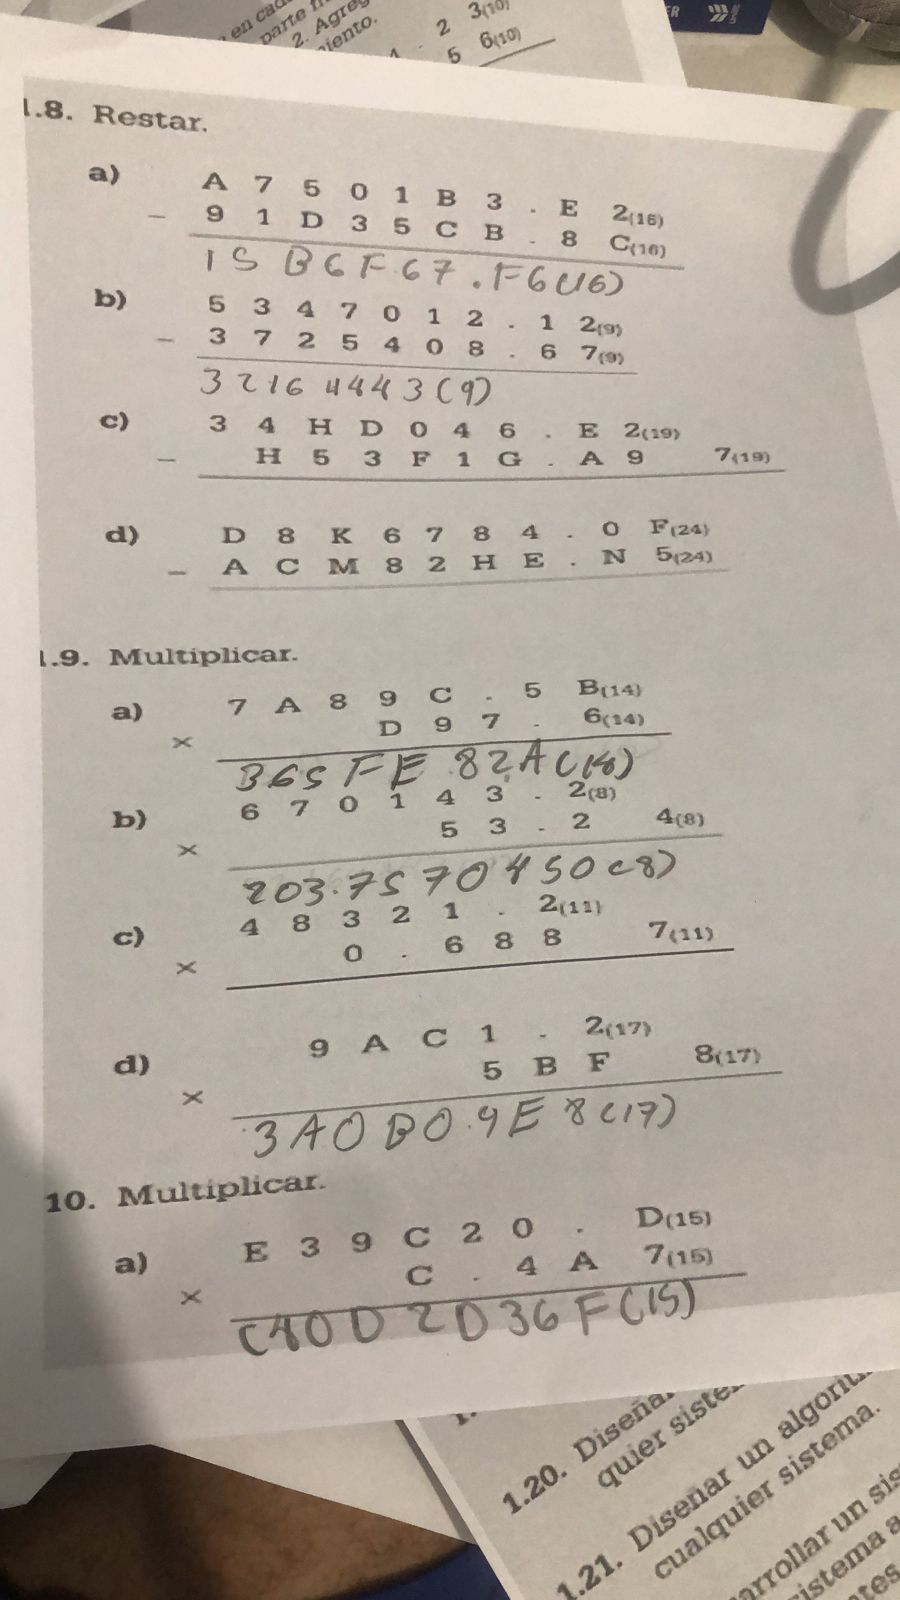 en cad
parte
2. Agreg
iento.
2 3(10)
5 6(10)
ER
1.8. Restar.
a) A 7 5 0 1 B 3 . E 2(16)
− 9 1 D 3 5 C B . 8 C(16)
15 B6F67.F6(16)
b) 5 3 4 7 0 1 2 . 1 2(9)
− 3 7 2 5 4 0 8 . 6 7(9)
32164443(9)
c) 3 4 H D 0 4 6 . E 2(19)
− H 5 3 F 1 G . A 9 7(19)
d) D 8 K 6 7 8 4 . 0 F(24)
− A C M 8 2 H E . N 5(24)
1.9. Multiplicar.
a) 7 A 8 9 C . 5 B(14)
× D 9 7 . 6(14)
B65FE 82A(14)
b) 6 7 0 1 4 3 . 2(8)
× 5 3 . 2 4(8)
203.7570450(8)
c) 4 8 3 2 1 . 2(11)
× 0 . 6 8 8 7(11)
d) 9 A C 1 . 2(17)
× 5 B F 8(17)
3A0B0.4E8(17)
10. Multiplicar.
a) E 3 9 C 2 0 . D(15)
× C . 4 A 7(15)
C40D2D36F(15)
1.20. Diseña
quier siste
1.21. Diseñar un algorit
cualquier sistema.
arrollar un sis
sistema a